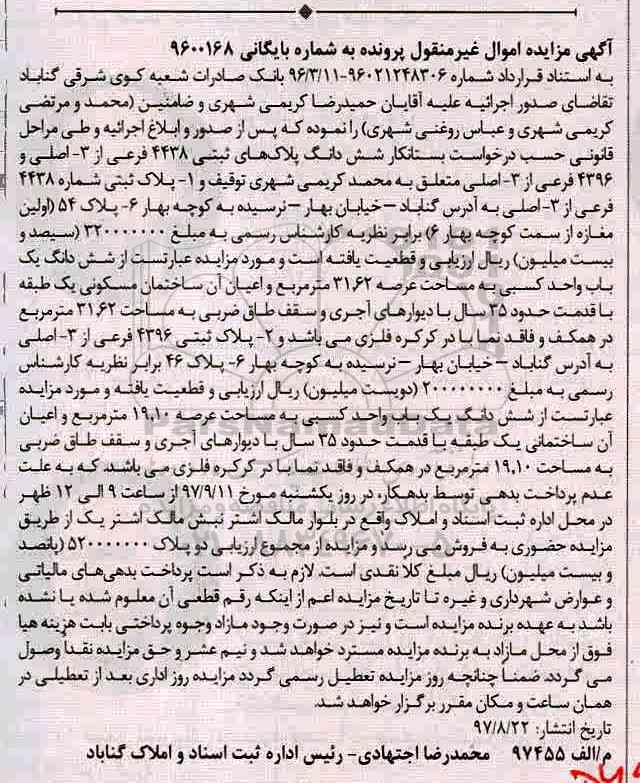 آگهی مزایده اموال غیرمنقول پرونده به شماره بایگانی ۹۶۰۰۱۶۸
به استناد قرارداد شماره ۹۶۰۲۱۲۴۸۳۰۶-۹۶/۳/۱۱ بانک صادرات شعبه کوی شرقی گناباد
تقاضای صدور اجرائیه علیه آقایان حمیدرضا کریمی شهری و ضامنین (محمد و مرتضی
کریمی شهری و عباس روغنی شهری) را نموده که پس از صدور و ابلاغ اجرائیه و طی مراحل
قانونی حسب درخواست بستانکار شش دانگ پلاک‌های ثبتی ۴۴۳۸ فرعی از ۳- اصلی و
۴۳۹۶ فرعی از ۳- اصلی متعلق به محمد کریمی شهری توقیف و ۱- پلاک ثبتی شماره ۴۴۳۸
فرعی از ۳- اصلی به آدرس گناباد –خیابان بهار –نرسیده به کوچه بهار ۶- پلاک ۵۴ (اولین
مغازه از سمت کوچه بهار ۶) برابر نظریه کارشناس رسمی به مبلغ ۳۲۰۰۰۰۰۰۰ (سیصد و
بیست میلیون) ریال ارزیابی و قطعیت یافته است و مورد مزایده عبارتست از شش دانگ یک
باب واحد کسبی به مساحت عرصه ۳۱,۶۲ مترمربع و اعیان آن ساختمان مسکونی یک طبقه
با قدمت حدود ۳۵ سال با دیوارهای آجری و سقف طاق ضربی به مساحت ۳۱,۶۲ مترمربع
در همکف و فاقد نما با در کرکره فلزی می باشد و ۲- پلاک ثبتی ۴۳۹۶ فرعی از ۳- اصلی
به آدرس گناباد –خیابان بهار –نرسیده به کوچه بهار ۶- پلاک ۴۶ برابر نظریه کارشناس
رسمی به مبلغ ۲۰۰۰۰۰۰۰۰ (دویست میلیون) ریال ارزیابی و قطعیت یافته و مورد مزایده
عبارتست از شش دانگ یک باب واحد کسبی به مساحت عرصه ۱۹,۱۰ مترمربع و اعیان
آن ساختمانی یک طبقه با قدمت حدود ۳۵ سال با دیوارهای آجری و سقف طاق ضربی
به مساحت ۱۹,۱۰ مترمربع در همکف و فاقد نما با در کرکره فلزی می باشد. که به علت
عدم پرداخت بدهی توسط بدهکار، در روز یکشنبه مورخ ۹۷/۹/۱۱ از ساعت ۹ الی ۱۲ ظهر
در محل اداره ثبت اسناد و املاک واقع در بلوار مالک اشتر نبش مالک اشتر یک از طریق
مزایده حضوری به فروش می رسد و مزایده از مجموع ارزیابی دو پلاک ۵۲۰۰۰۰۰۰۰ (پانصد
و بیست میلیون) ریال مبلغ کلا نقدی است. لازم به ذکر است پرداخت بدهی‌های مالیاتی
و عوارض شهرداری و غیره تا تاریخ مزایده اعم از اینکه رقم قطعی آن معلوم شده یا نشده
باشد به عهده برنده مزایده است و نیز در صورت وجود مازاد وجوه پرداختی بابت هزینه هیا
فوق از محل مازاد به برنده مزایده مسترد خواهد شد و نیم عشر و حق مزایده نقداً وصول
می گردد. ضمناً چنانچه روز مزایده تعطیل رسمی گردد مزایده روز اداری بعد از تعطیلی در
همان ساعت و مکان مقرر برگزار خواهد شد.
تاریخ انتشار: ۹۷/۸/۲۲
م/الف ۹۷۴۵۵ محمدرضا اجتهادی- رئیس اداره ثبت اسناد و املاک گناباد